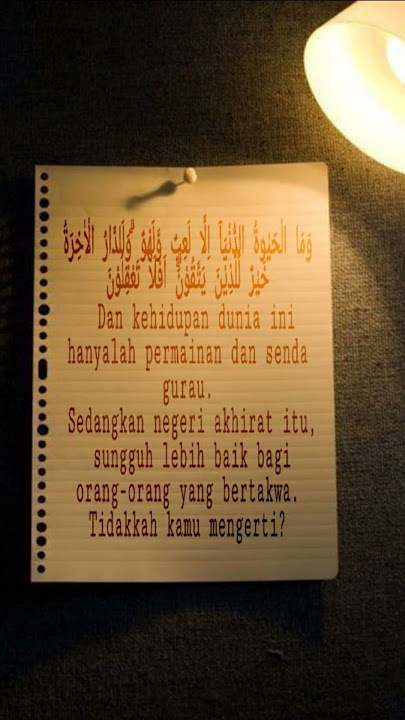 وَمَا الْحَيٰوةُ الدُّنْيَآ اِلَّا لَعِبٌ وَّلَهْوٌ ۗوَلَلدَّارُ الْاٰخِرَةُ
خَيْرٌ لِّلَّذِيْنَ يَتَّقُوْنَۗ اَفَلَا تَعْقِلُوْنَ
Dan kehidupan dunia ini
hanyalah permainan dan senda
gurau.
Sedangkan negeri akhirat itu,
sungguh lebih baik bagi
orang-orang yang bertakwa.
Tidakkah kamu mengerti?